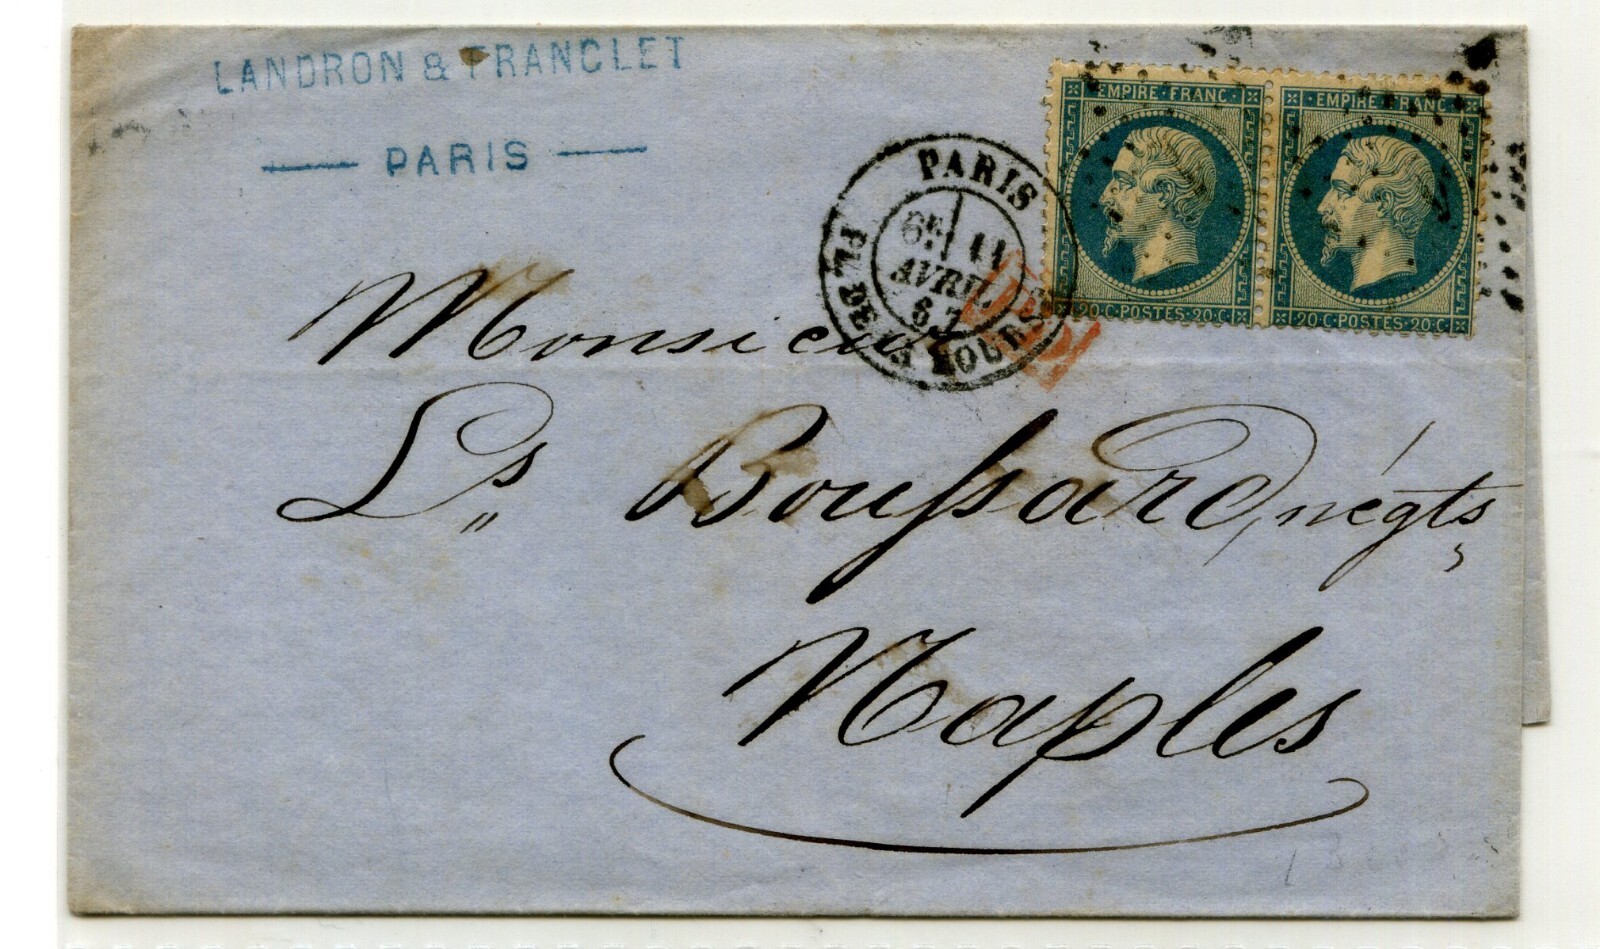 LANDRON & FRANCLET
— PARIS —
PARIS
6E 11
AVRIL
67
PL. DE LA BOURSE
EMPIRE · FRANC ·
20 · C · POSTES · 20 · C
EMPIRE · FRANC ·
20 · C · POSTES · 20 · C
Monsieur
Ls Boussard, négts,
Naples